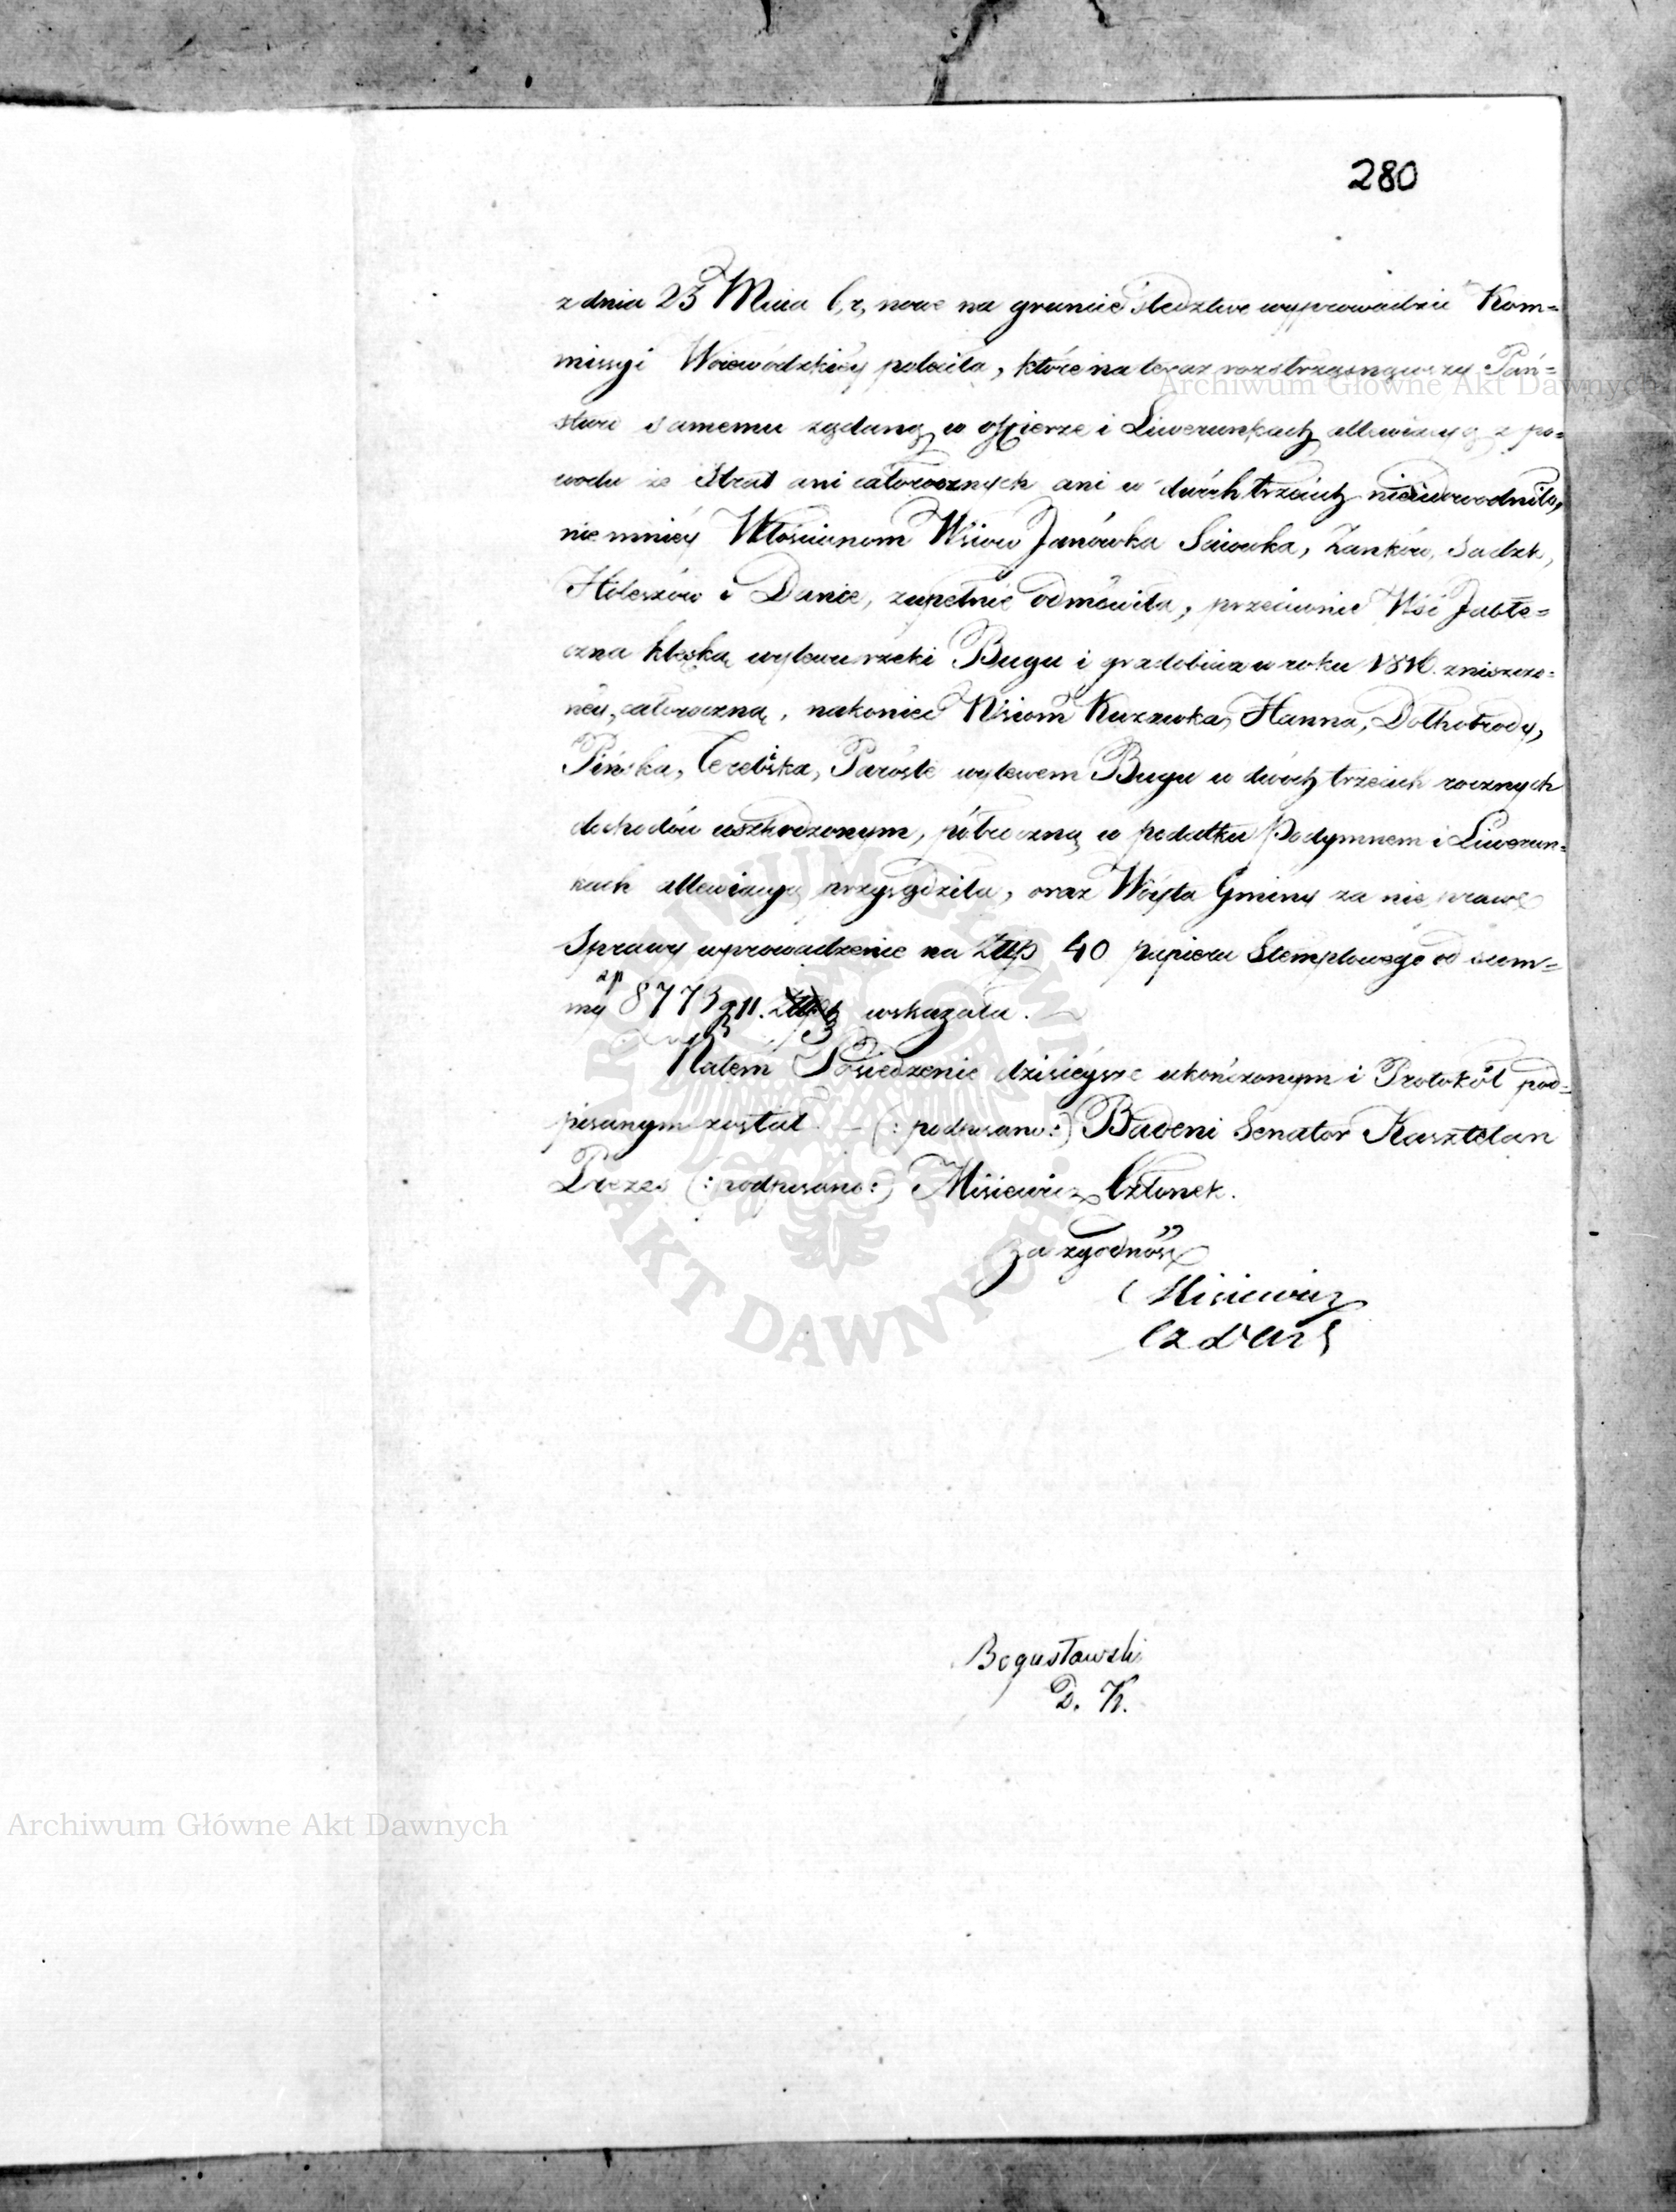 280
z dnia 23 Maia b, r, nowe na gruncie śledztwo wyprowadzić Kom=
missyi Woiewódzkiey poleciła, które na teraz rozstrząsnąwszy Pań=
stwu samemu żądaną w ofierze i Liwerunkach allewiacyą z po=
wodu że Strat ani całorocznych ani w dwóch trzecich nieudowodniło,
niemniéy Włościanom Wsiów Janówka Saiówka, Zanków, Sadzk,
Holeszów i Danie, zupełnie odmówiła, przeciwnie Wsi Jabłe=
czna klęską wylewu rzeki Bugu i gradobicia w roku 1816. zniszczo=
néy, całoroczną, nakoniec Wsiom Kuzawka, Hanna, Dołhobrody,
Pińska, Terebiska, Parośle wylewem Bugu w dwóch trzecich rocznych
dochodów uszkodzonym, półroczną w podatku Podymnem i Liwerun=
kach allewiacyą przysądziła, oraz Wóyta Gminy za nieprawe
Sprawy wprowadzenie na Złłp 40 papieru Stemplowego od sum=
my zp 8773 g 11. wskazała.
Natem Posiedzenie dzisiéysze ukończonym i Protokół pod=
pisanym został. – (: podpisano :) Badeni Senator Kasztelan
Prezes (: podpisano :) Misiewicz Członek.
Za zgodność
Misiewicz
Bogusławski
D. K.
Archiwum Główne Akt Dawnych
ARCHIWUM GŁÓWNE AKT DAWNYCH
Archiwum Główne Akt Dawnych